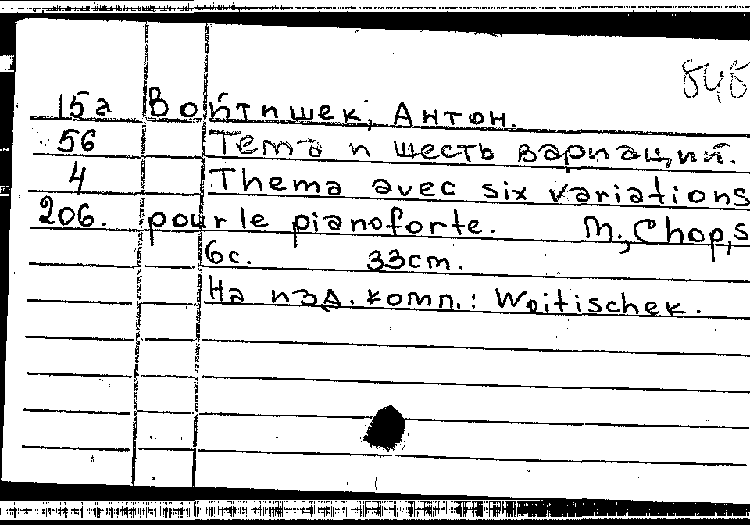 848
15а Войтишек, Антон.
56 Тема и шесть вариаций.
4 Thema avec six variations
206. pour le pianoforte. M., Chop, s
6с. 33cm.
На изд. комп.: Woitischek.